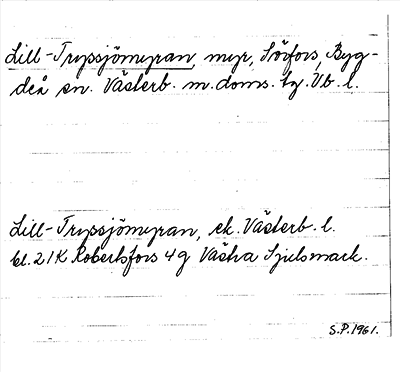 Lill-Trypsjömyran, myr, Sörfors, Byg-
deå sn. Västerb. m. doms. tg. Vb. l.
Lill-Trypsjömyran, ek. Västerb. l.
bl. 21K Robertsfors 4g Västra Sjulsmark.
S.P. 1961.